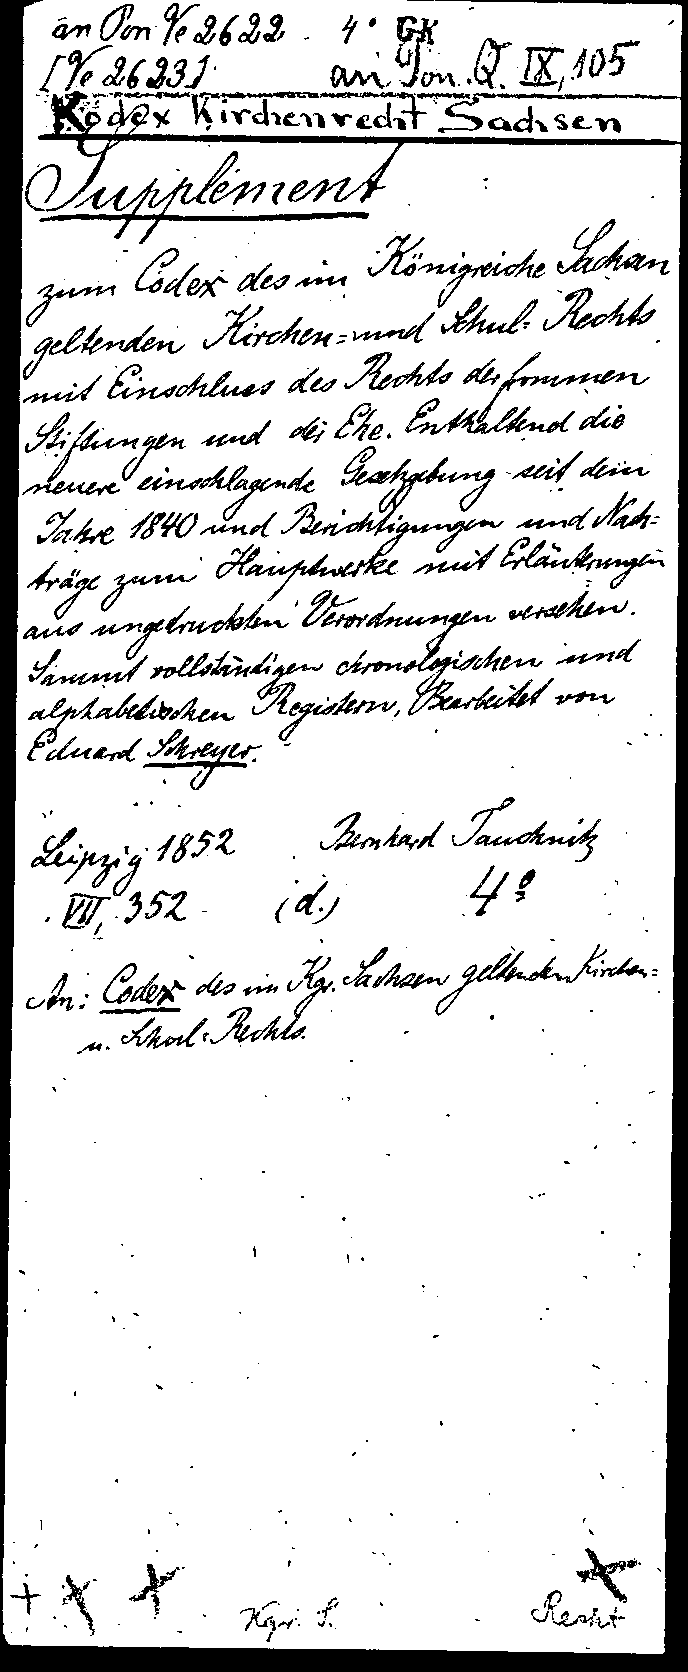 an Pon Ve 2622 4° GK
[Ve 2623] an Pon. Q. IX, 105
Kodex Kirchenrecht Sachsen
Supplement
zum Codex des im Königreiche Sachsen
geltenden Kirchen- und Schul-Rechts
mit Einschluss des Rechts der frommen
Stiftungen und der Ehe. Enthaltend die
neuere einschlagende Gesetzgebung seit dem
Jahre 1840 und Berichtigungen und Nach-
träge zum Hauptwerke mit Erläuterungen
aus ungedruckten Verordnungen versehen.
Sammt vollständigen chronologischen und
alphabetischen Registern, Bearbeitet von
Eduard Schreyer.
Leipzig 1852 Bernhard Tauchnitz
VII, 352 (d.) 4°
An: Codex des im Kgr. Sachsen geltenden Kirchen-
u. Schul-Rechts.
Kgr. S. Recht